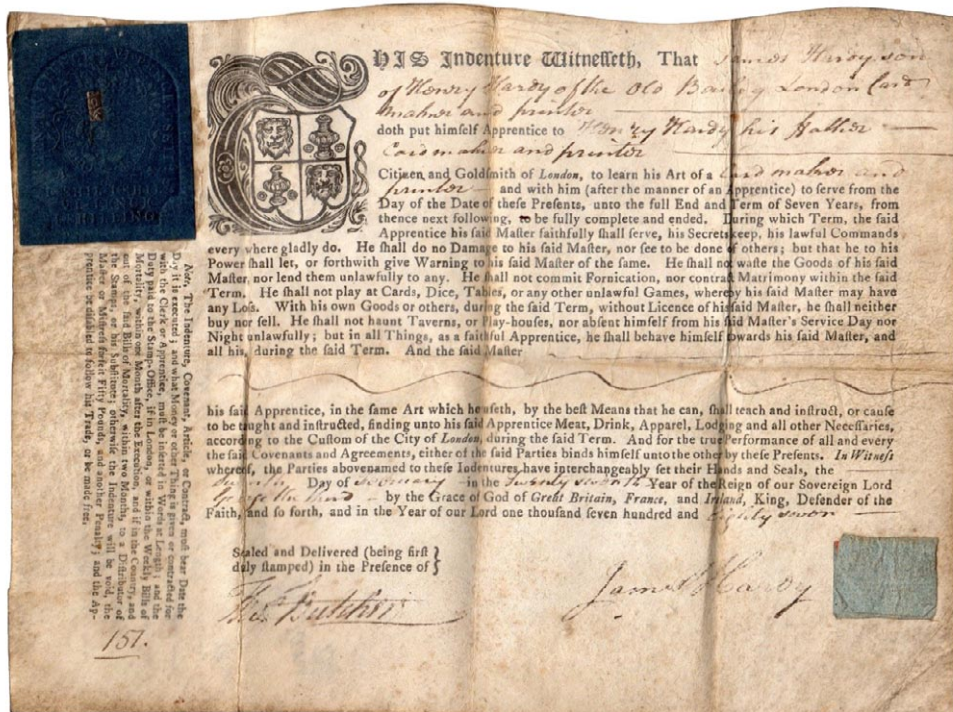 THIS Indenture Witneſſeth, That James Hardy son
of Henry Hardy of the Old Bailey London Card
maker and printer
doth put himſelf Apprentice to Henry Hardy his Father
Cardmaker and printer
Citizen and Goldſmith of London, to learn his Art of a Card maker and
printer and with him (after the manner of an Apprentice) to ſerve from the
Day of the Date of theſe Preſents, unto the full End and Term of Seven Years, from
thence next following, to be fully complete and ended. During which Term, the ſaid
Apprentice his ſaid Maſter faithfully ſhall ſerve, his Secrets keep, his lawful Commands
every where gladly do. He ſhall do no Damage to his ſaid Maſter, nor ſee to be done of others; but that he to his
Power ſhall let, or forthwith give Warning to his ſaid Maſter of the ſame. He ſhall not waſte the Goods of his ſaid
Maſter, nor lend them unlawfully to any. He ſhall not commit Fornication, nor contract Matrimony within the ſaid
Term. He ſhall not play at Cards, Dice, Tables, or any other unlawful Games, whereby his ſaid Maſter may have
any Loſs. With his own Goods or others, during the ſaid Term, without Licence of his ſaid Maſter, he ſhall neither
buy nor ſell. He ſhall not haunt Taverns, or Play-houſes, nor abſent himſelf from his ſaid Maſter's Service Day nor
Night unlawfully; but in all Things, as a faithful Apprentice, he ſhall behave himſelf towards his ſaid Maſter, and
all his, during the ſaid Term. And the ſaid Maſter
his ſaid Apprentice, in the ſame Art which he uſeth, by the beſt Means that he can, ſhall teach and inſtruct, or cauſe
to be taught and inſtructed, finding unto his ſaid Apprentice Meat, Drink, Apparel, Lodging and all other Neceſſaries,
according to the Cuſtom of the City of London, during the ſaid Term. And for the true Performance of all and every
the ſaid Covenants and Agreements, either of the ſaid Parties binds himſelf unto the other by theſe Preſents. In Witneſs
whereof, the Parties abovenamed to theſe Indentures have interchangeably ſet their Hands and Seals, the
Day of in the Twenty seventh Year of the Reign of our Sovereign Lord
George the third by the Grace of God of Great Britain, France, and Ireland, King, Defender of the
Faith, and ſo forth, and in the Year of our Lord one thouſand ſeven hundred and eighty seven
Sealed and Delivered (being firſt
duly ſtamped) in the Preſence of
James Hardy
Note, The Indenture, Covenant, Article, or Contract, muſt bear Date the
Day it is executed; and what Money or other Thing is given or contracted for
with the Clerk or Apprentice, muſt be inſerted in Words at Length; and the
Duty paid to the Stamp-Office, if in London, or within the Weekly Bills of
Mortality, within one Month after the Execution, and if in the Country, and
out of the ſaid Bills of Mortality, within two Months, to a Diſtributor of
the Stamps, or his Subſtitute; otherwiſe the Indenture will be void, the
Maſter or Miſtreſs forfeit Fifty Pounds, and another Penalty; and the Ap-
prentice be diſabled to follow his Trade, or be made free.
157.